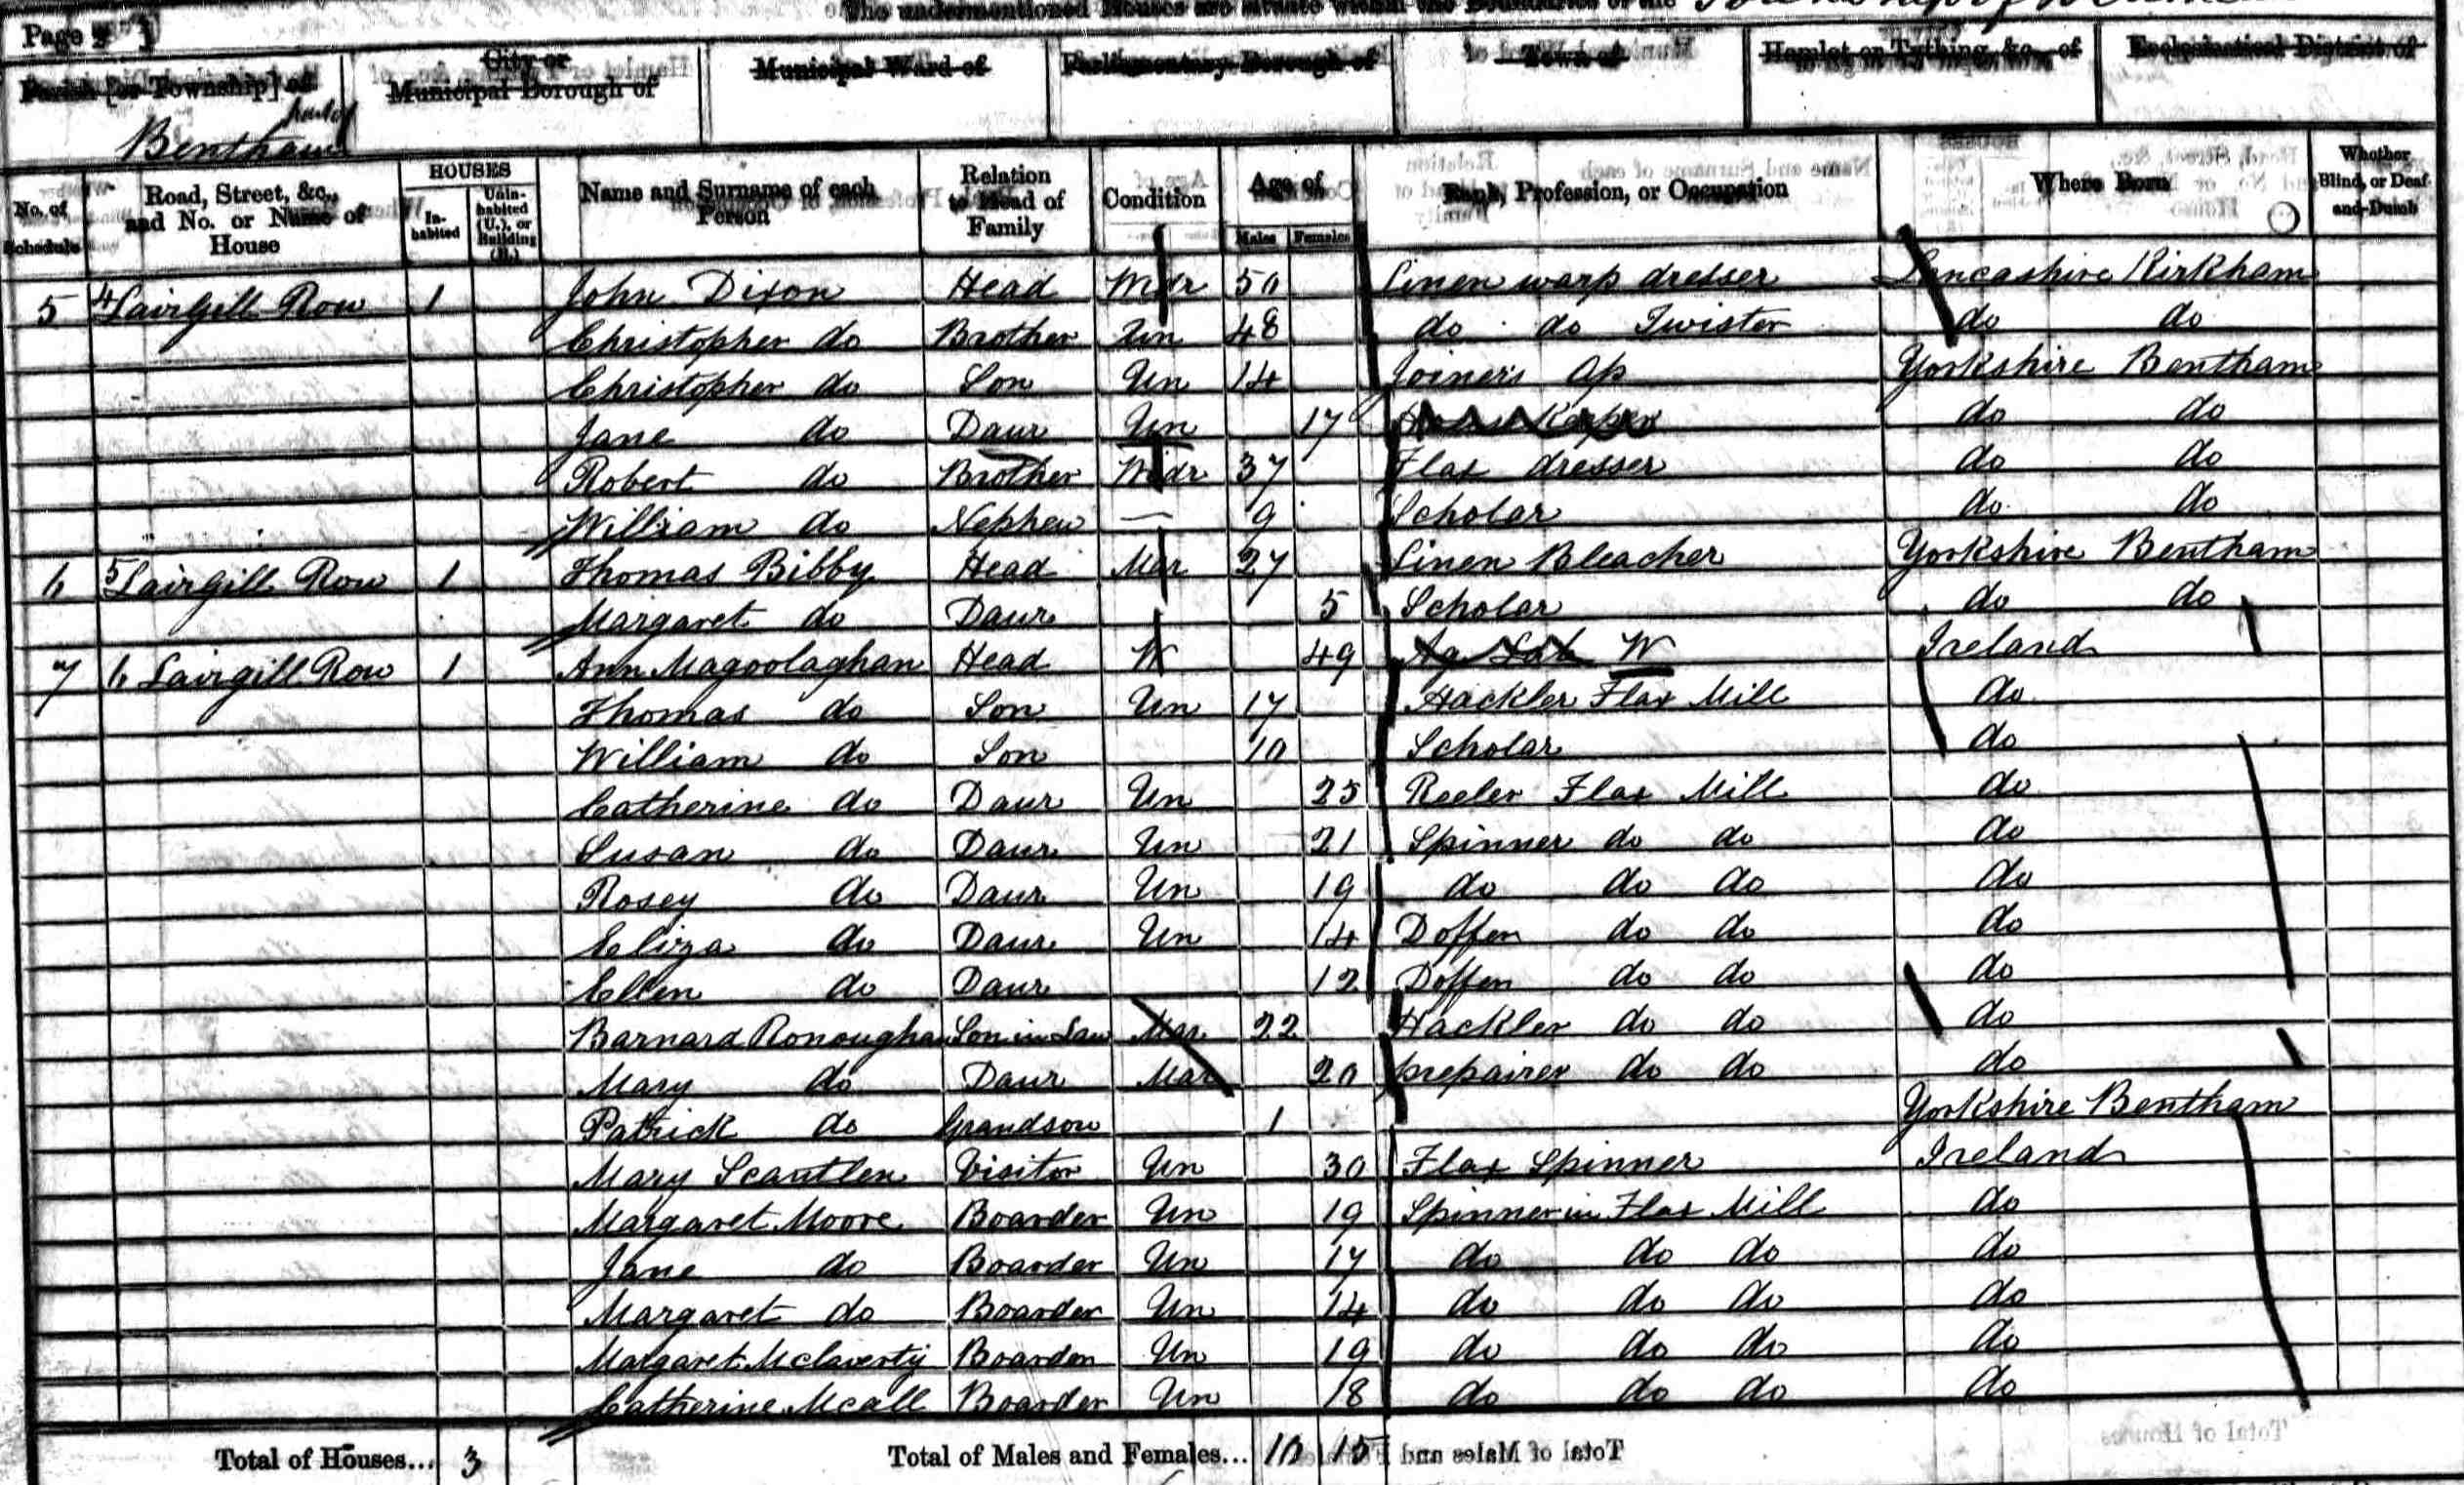 The undermentioned Houses are situate within the Boundaries of the Township of
Page
Parish [or Township] of
part of
Bentham
City or
Municipal Borough of
Municipal Ward of
Parliamentary Borough of
Town of
Hamlet or Tything, &c., of
Ecclesiastical District of
No. of Schedule
Road, Street, &c., and No. or Name of House
HOUSES
In-habited
Unin-habited (U.), or Building (B.)
Name and Surname of each Person
Relation to Head of Family
Condition
Age of
Males
Females
Rank, Profession, or Occupation
Where Born
Whether Blind, or Deaf-and-Dumb
5 4 Lairgill Row 1 John Dixon Head Wdr 50 Linen warp dresser Lancashire Kirkham
Christopher do Brother Un 48 do do Twister do do
Christopher do Son Un 14 Joiners Ap Yorkshire Bentham
Jane do Daur Un 17 do do
Robert do Brother Widr 37 Flax dresser do do
William do Nephew — 9 Scholar do do
6 5 Lairgill Row 1 Thomas Bibby Head Mar 27 Linen Bleacher Yorkshire Bentham
Margaret do Daur 5 Scholar do do
7 6 Lairgill Row 1 Ann Magoolaghan Head W 49 Ag Lab W Ireland
Thomas do Son Un 17 Hackler Flax Mill do
William do Son 10 Scholar do
Catherine do Daur Un 25 Reeler Flax Mill do
Susan do Daur Un 21 Spinner do do do
Rosey do Daur Un 19 do do do do
Eliza do Daur Un 14 Doffer do do do
Ellen do Daur 12 Doffer do do do
Barnard Ronoughan Son in Law Mar 22 Hackler do do do
Mary do Daur Mar 20 prepairer do do do
Patrick do Grandson 1 Yorkshire Bentham
Mary Scantlen Visitor Un 30 Flax Spinner Ireland
Margaret Moore Boarder Un 19 Spinner in Flax Mill do
Jane do Boarder Un 17 do do do do
Margaret do Boarder Un 14 do do do do
Margaret Mclaverty Boarder Un 19 do do do do
Catherine Mcall Boarder Un 18 do do do do
Total of Houses... 3 Total of Males and Females... 10 15